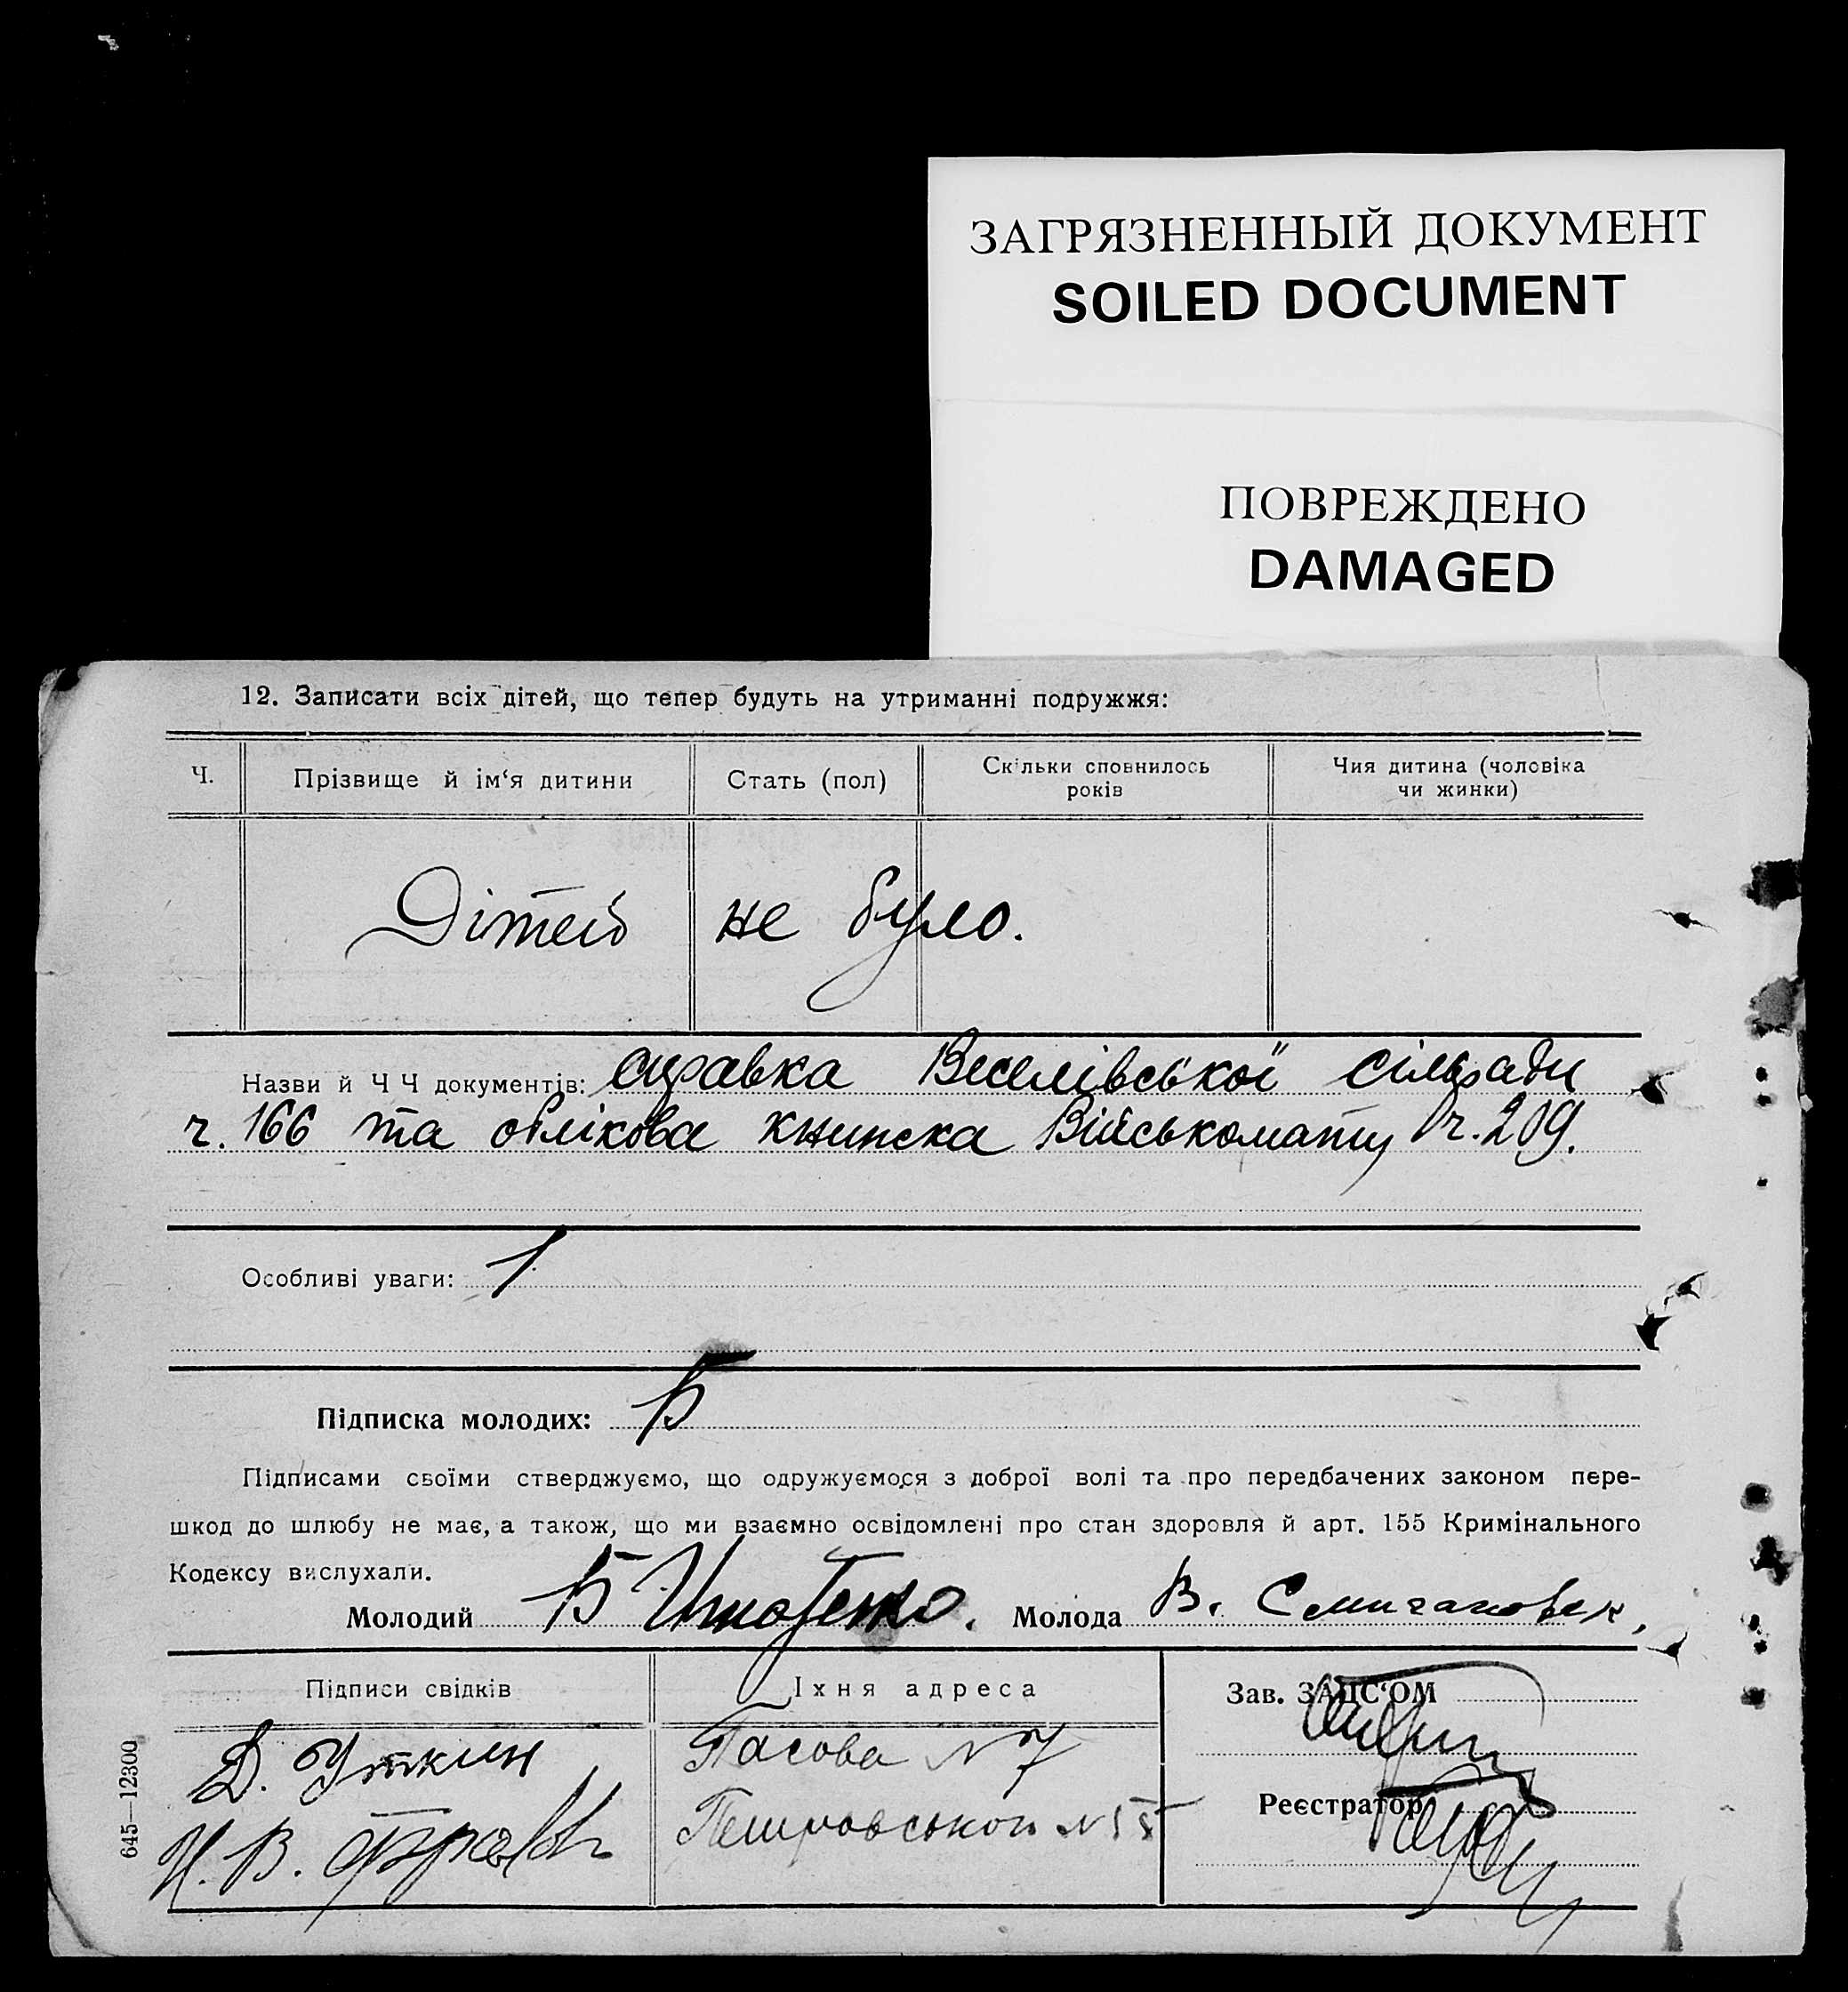 ЗАГРЯЗНЕННЫЙ ДОКУМЕНТ
SOILED DOCUMENT
ПОВРЕЖДЕНО
DAMAGED
12. Записати всіх дітей, що тепер будуть на утриманні подружжя:
Ч. Прізвище й ім‘я дитини Стать (пол) Скільки сповнилось років Чия дитина (чоловіка чи жинки)
Дітей не було.
Назви й Ч Ч документів: справка Веселівської сільради
ч. 166 та облікова книжка Військомату ч. 209.
Особливі уваги:
Підписка молодих: Б
Підписами своїми стверджуємо, що одружуємося з доброї волі та про передбачених законом пере-
шкод до шлюбу не має, а також, що ми взаємно освідомлені про стан здоровля й арт. 155 Кримінального
Кодексу вислухали.
Молодий Б Молода В.
Підписи свідків Їхня адреса Зав. ЗАПС‘ОМ
Д. Уткин Пасова N 7
Реєстратор
Н. В. Петровського N
645—12300